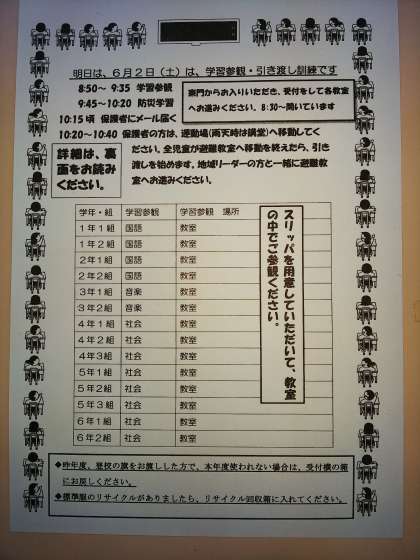 明日は、6月2日(土)は、学習参観・引き渡し訓練です
8:50～ 9:35 学習参観
9:45～10:20 防災学習
10:15 頃 保護者にメール届く
東門からお入りいただき、受付をして各教室
へお進みください。8:30～開いています
10:20～10:40 保護者の方は、運動場(雨天時は講堂)へ移動してく
ださい。全児童が避難教室へ移動を終えたら、引き
渡しを始めます。地域リーダーの方と一緒に避難教
室へお進みください。
詳細は、裏
面をお読み
ください。
学年・組 学習参観 学習参観 場所
1年1組 国語 教室
1年2組 国語 教室
2年1組 国語 教室
2年2組 国語 教室
3年1組 音楽 教室
3年2組 音楽 教室
4年1組 社会 教室
4年2組 社会 教室
4年3組 社会 教室
5年1組 社会 教室
5年2組 社会 教室
5年3組 社会 教室
6年1組 社会 教室
6年2組 社会 教室
スリッパを用意していただいて、教室
の中でご参観ください。
◆昨年度、登校の旗をお渡しした方で、本年度使われない場合は、受付横の箱
にお戻しください。
◆標準服のリサイクルがありましたら、リサイクル回収箱に入れてください。